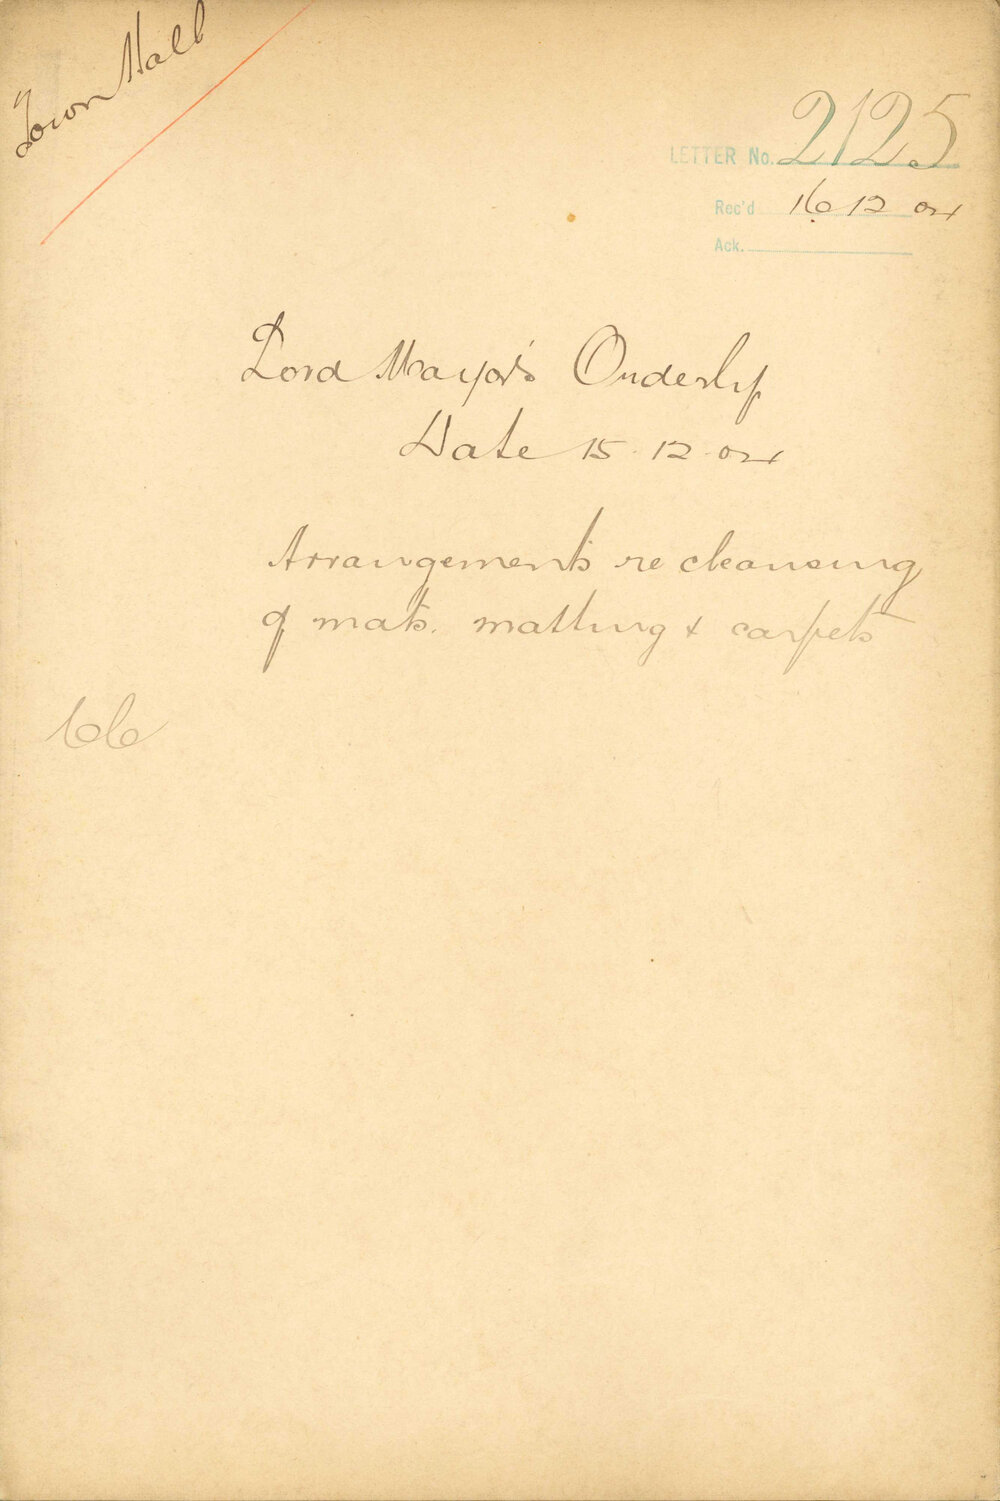 Town Hall
LETTER No. 2125
Rec'd 16 12 04
Ack.
Lord Mayor's Orderly
Date 15.12.04
Arrangements re cleansing
of mats. matting & carpets